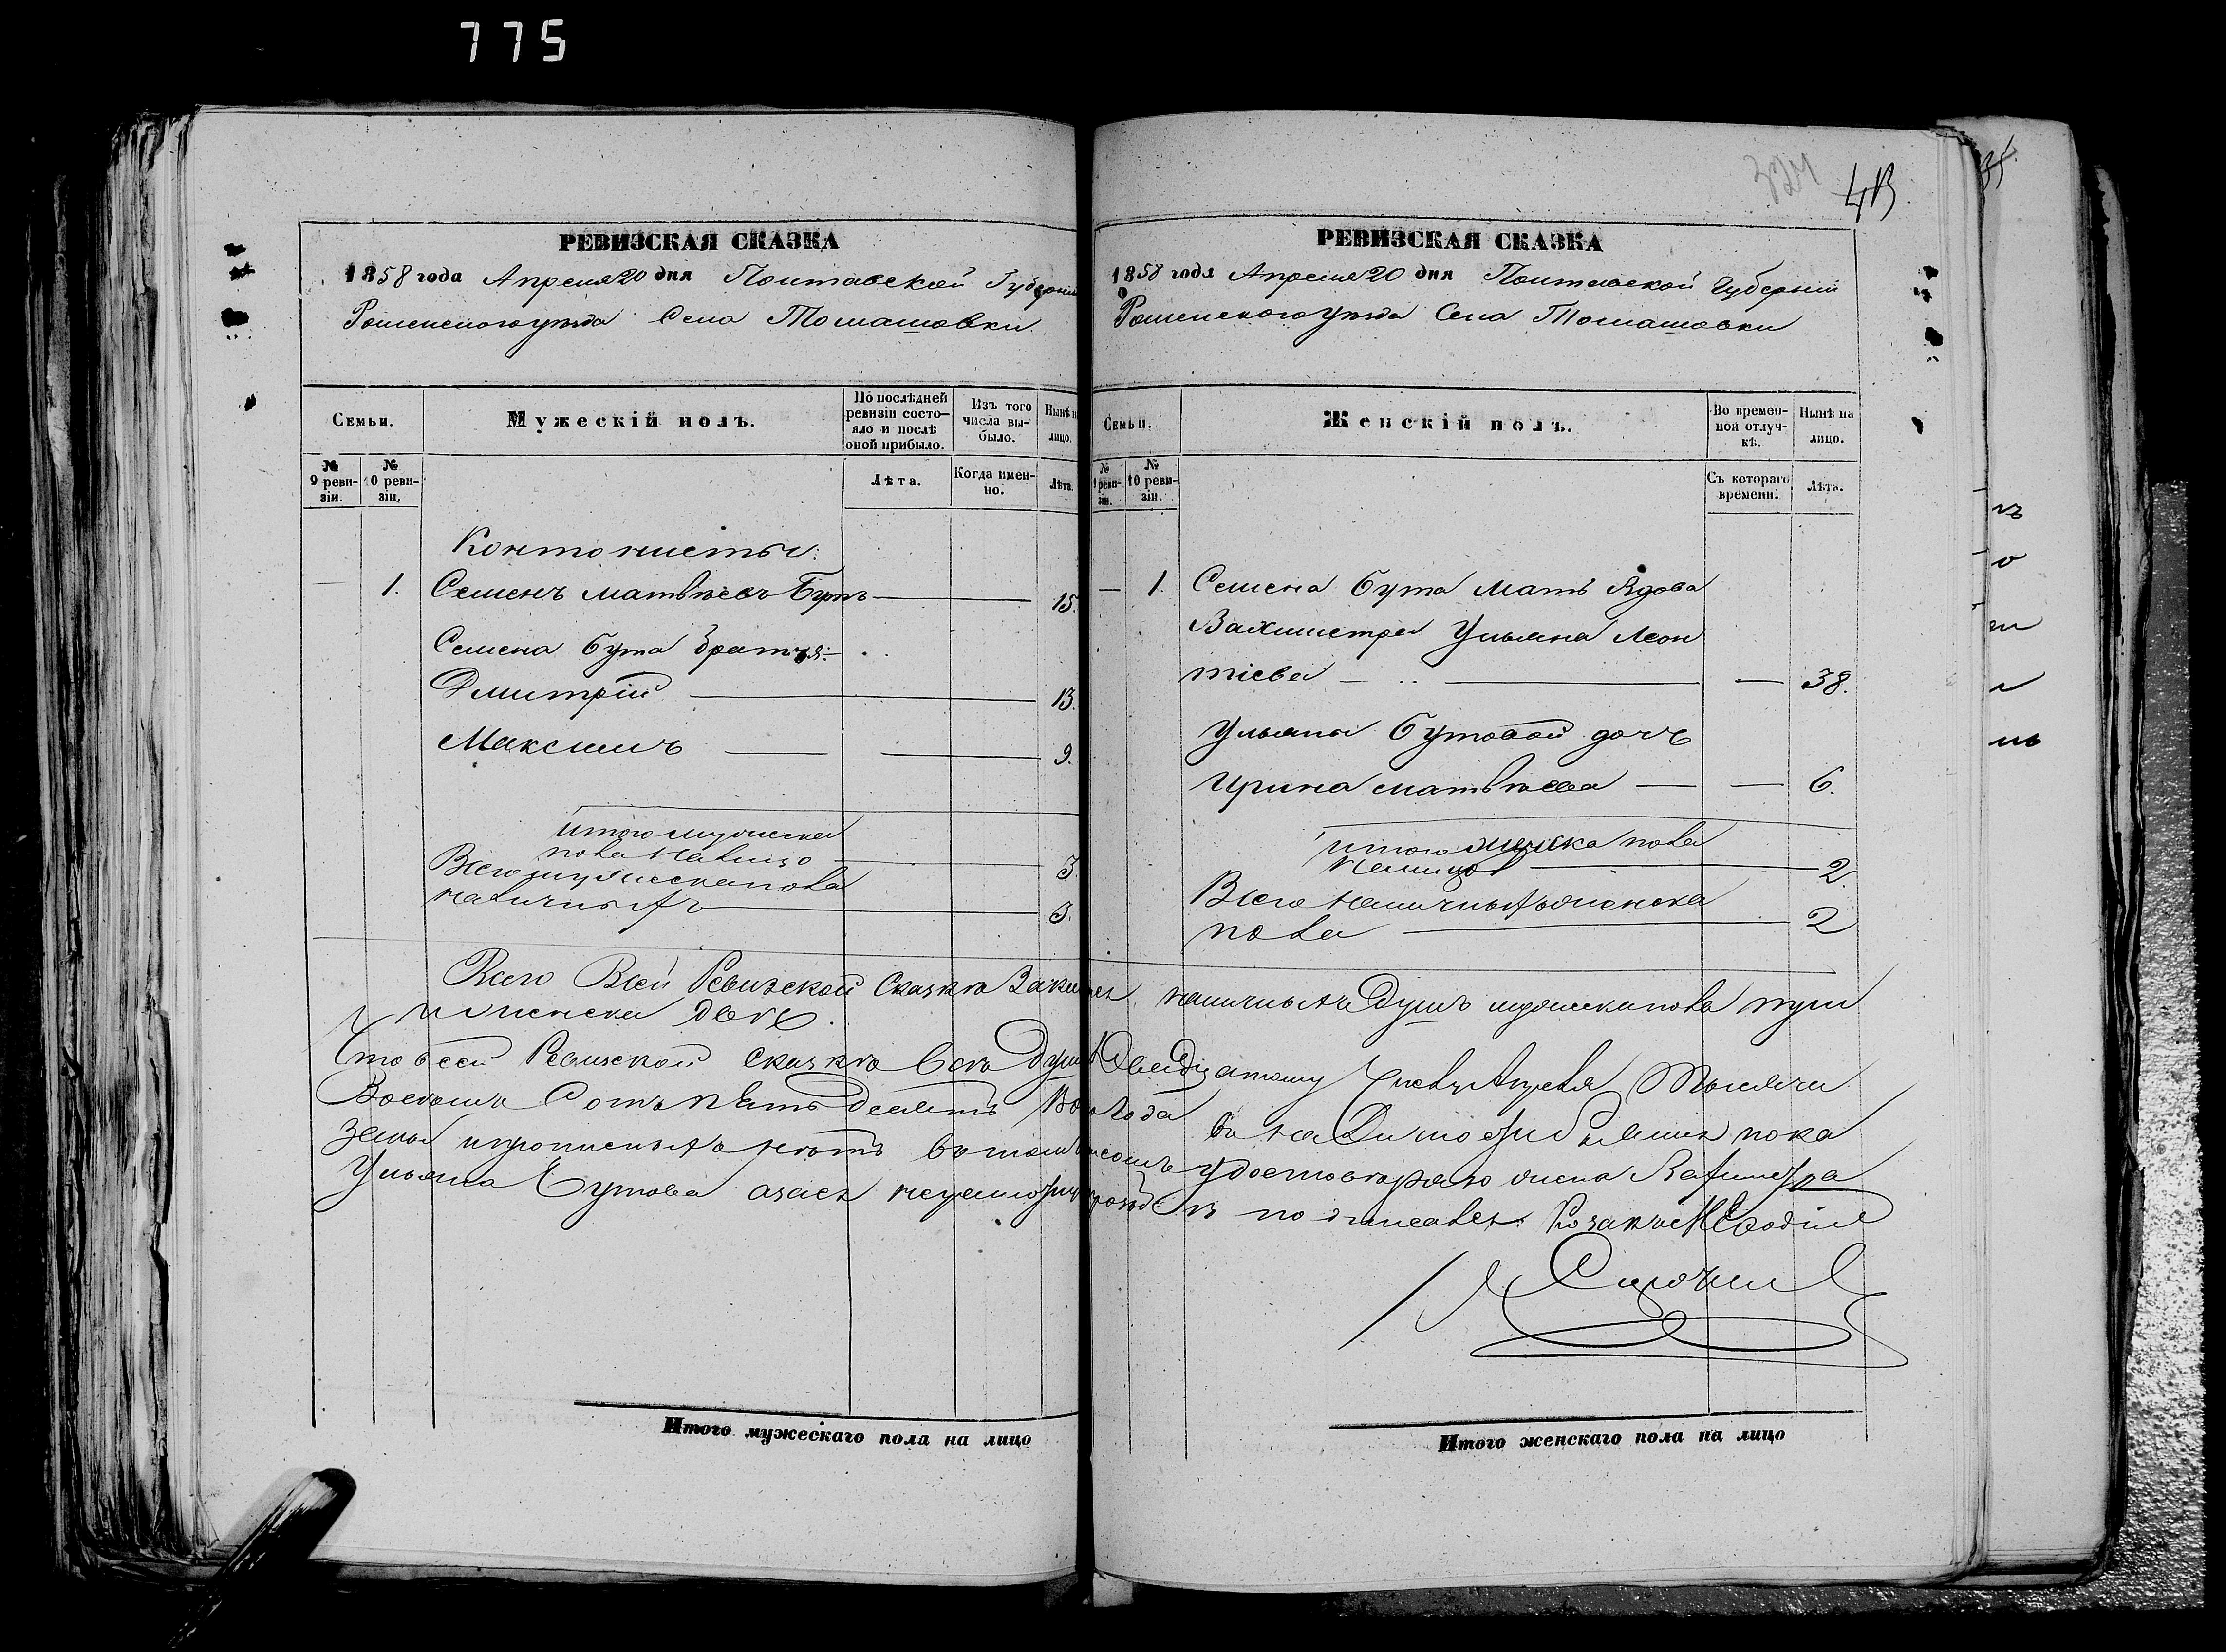 775
РЕВИЗСКАЯ СКАЗКА
1858 года Апреля 20 дня Полтавской Губернии
Роменского уезда Села Томашовки
Семьи.
Мужескій полъ.
По послѣдней ревизіи состояло и послѣ оной прибыло.
Изъ того числа выбыло.
Нынѣ на лицо.
№ 9 ревизіи.
№ 10 ревизіи.
Лѣта.
Когда именно.
Лѣта.
Контонисты.
1. Семенъ Матвѣевъ Бутъ 15.
Семена Бута братья:
Дмитрій 13.
Максимъ 9.
итого мужеска
пола налицо 3.
Всего мужеска пола
наличныхъ 3.
413.
РЕВИЗСКАЯ СКАЗКА
1858 года Апреля 20 дня Полтавской Губернии
Роменского уезда Села Томашовки
Семьи.
Женскій полъ.
Во временной отлучкѣ.
Нынѣ на лицо.
№ 9 ревизіи.
№ 10 ревизіи.
Съ котораго времени.
Лѣта.
1. Семена Бута Мать Вдова
Вахмистра Ульяна Леон
тіева 38.
Ульяны Бутовой дочь
Ирина Матвѣева 6.
итого женска пола
налицо 2.
Всего наличныхъ женска
пола 2
Всего Всей Ревизской Сказкѣ наличныхъ Душъ мужеска пола три
и женска две.
Что в сей Ревизской Сказкѣ всѣ Души Двадцатому Числу Апреля Тысячи
Восемь Сотъ Пять десятъ года в наличности пока
заны и прописныхъ нѣтъ въ томъ удостоверяю жена Вахмистра
Ульяна Бутова а за ея подписался Козакъ
Итого мужескаго пола на лицо
Итого женскаго пола на лицо